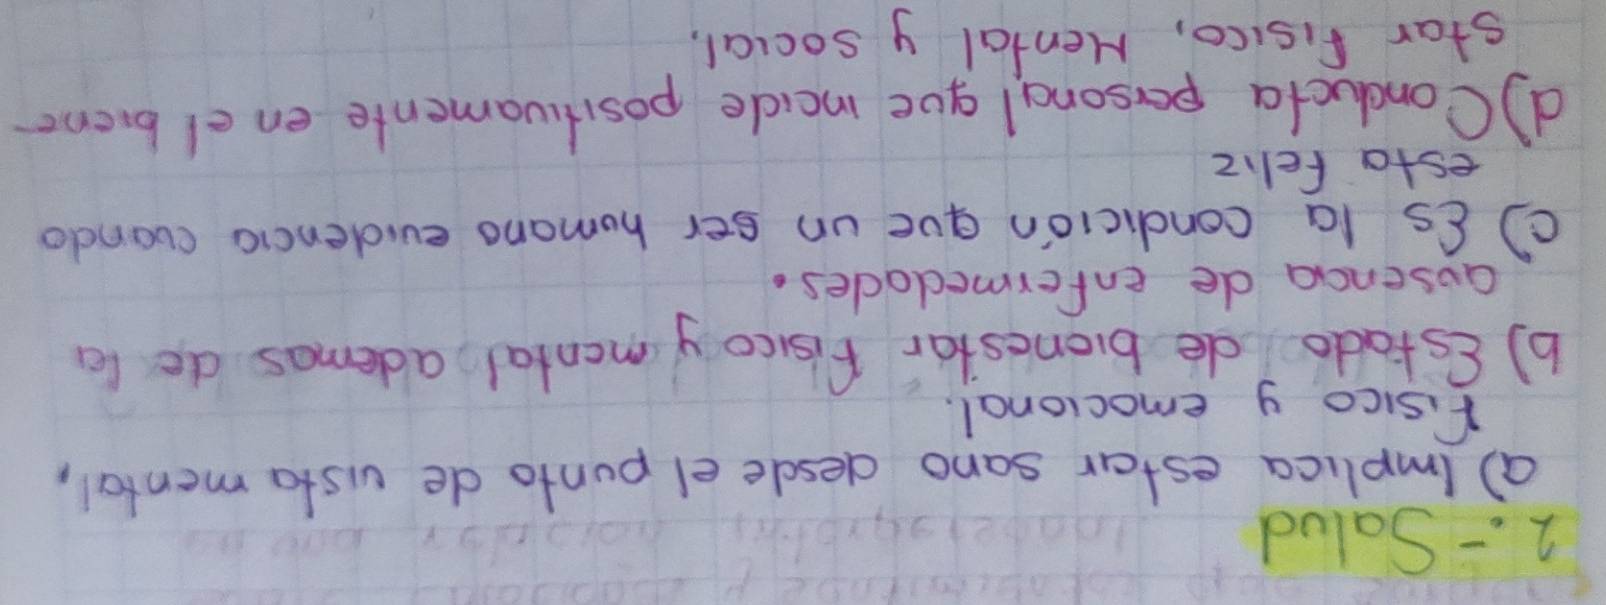 2.- Salud
a) Implica estar sano desde el punto de vista mental,
Fisico y emocional.
b) Estado de bienestar Fisico y mental ademas de la
ausencia de enfermedades.
c) Es la condición que un ser humano evidencia cuando
esta Feliz
d) Conducta personal que incide positivamente en el biene-
star Fisico, Mental y social.